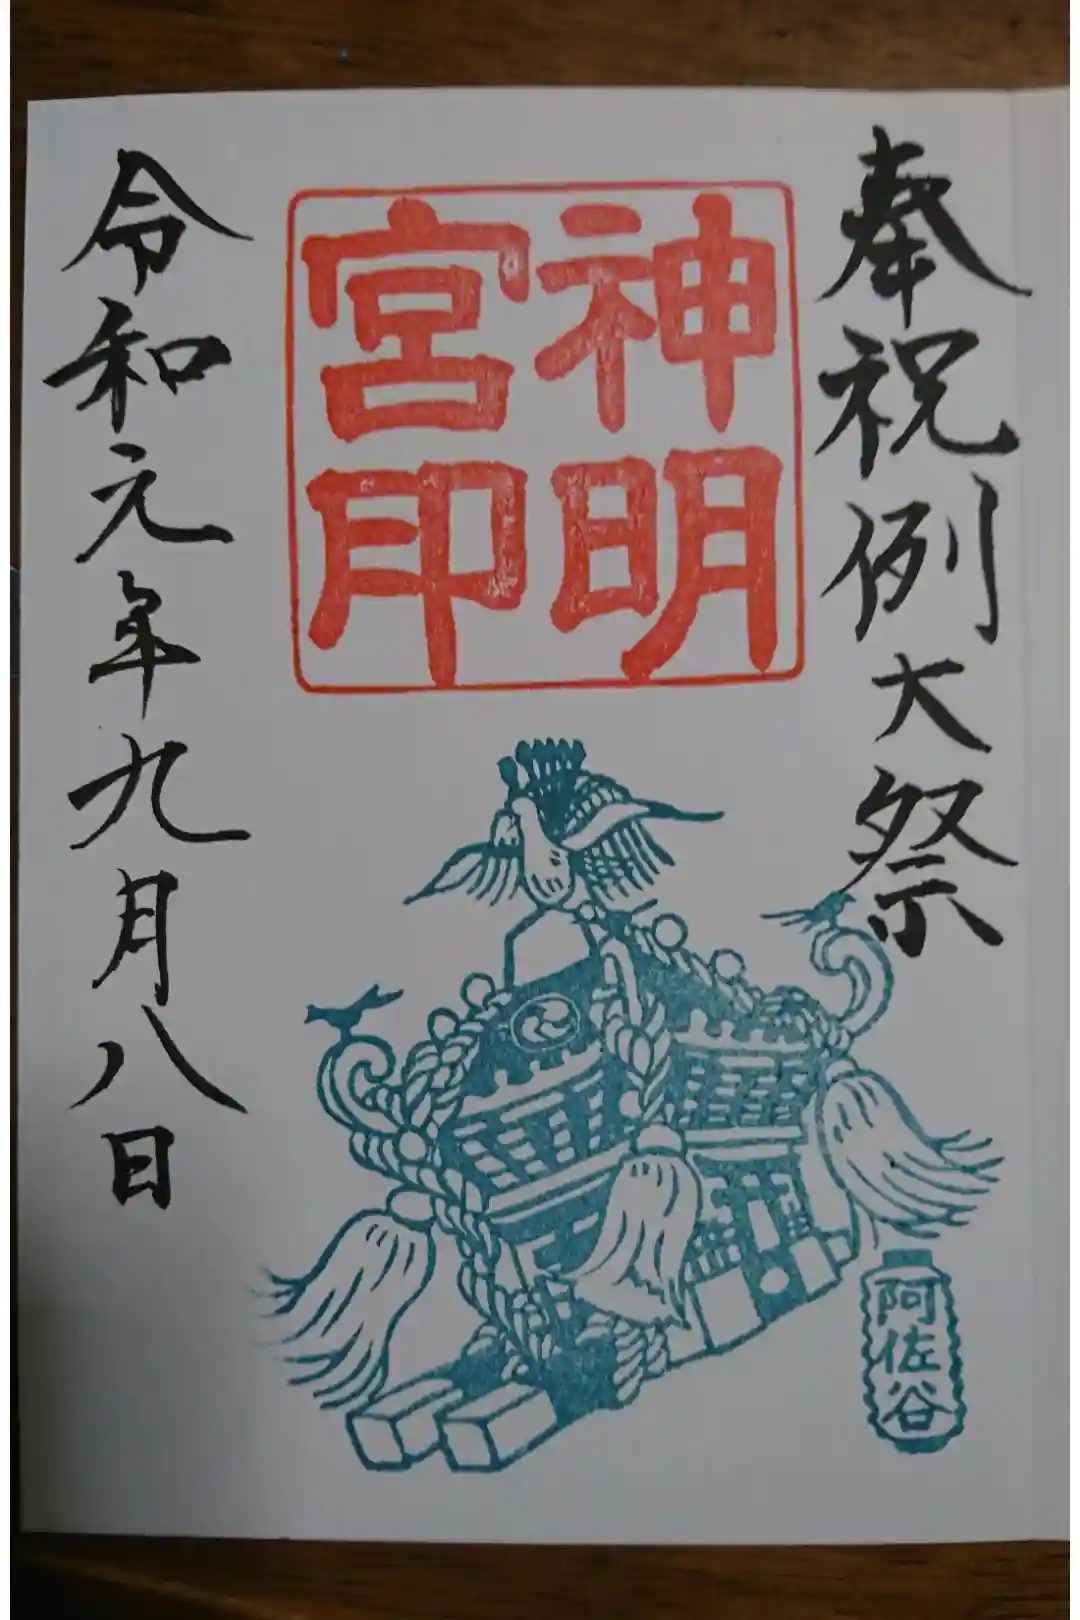 奉祝例大祭
神明
宮印
令和元年九月八日
阿佐谷